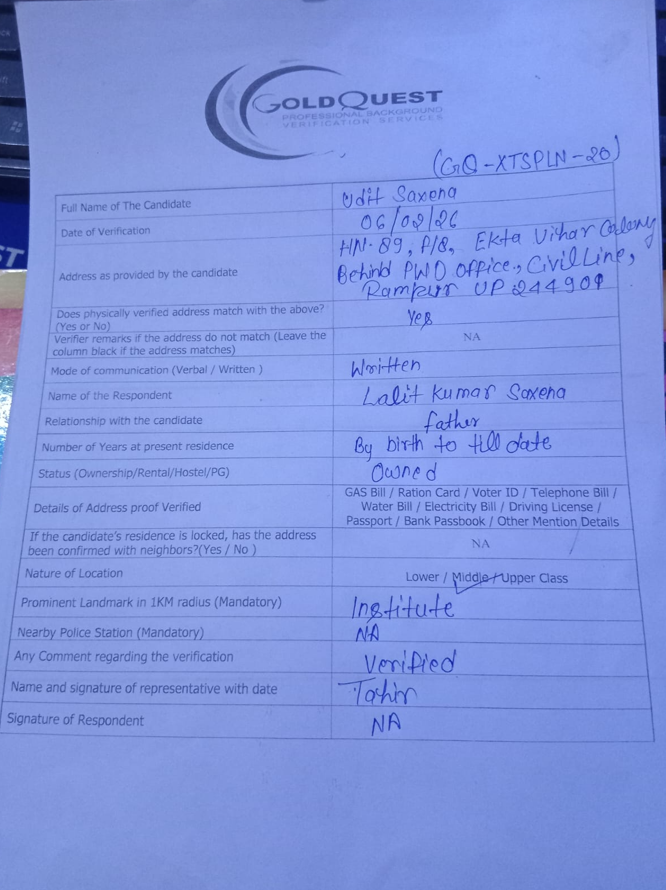 GOLDQUEST
PROFESSIONAL BACKGROUND
VERIFICATION SERVICES
(GQ-XTSPLN-20)
Full Name of The Candidate
Udit Saxena
Date of Verification
06/02/26
Address as provided by the candidate
HN-89, P/8, Ekta Vihar Colony
Behind PWD Office, Civil Line,
Rampur UP 244901
Does physically verified address match with the above?
(Yes or No)
Yes
Verifier remarks if the address do not match (Leave the
column black if the address matches)
NA
Mode of communication (Verbal / Written )
Written
Name of the Respondent
Lalit Kumar Saxena
Relationship with the candidate
father
Number of Years at present residence
By birth to till date
Status (Ownership/Rental/Hostel/PG)
Owned
Details of Address proof Verified
GAS Bill / Ration Card / Voter ID / Telephone Bill /
Water Bill / Electricity Bill / Driving License /
Passport / Bank Passbook / Other Mention Details
If the candidate's residence is locked, has the address
been confirmed with neighbors?(Yes / No )
NA
Nature of Location
Lower / Middle / Upper Class
Prominent Landmark in 1KM radius (Mandatory)
Institute
Nearby Police Station (Mandatory)
NA
Any Comment regarding the verification
Verified
Name and signature of representative with date
Tahir
Signature of Respondent
NA